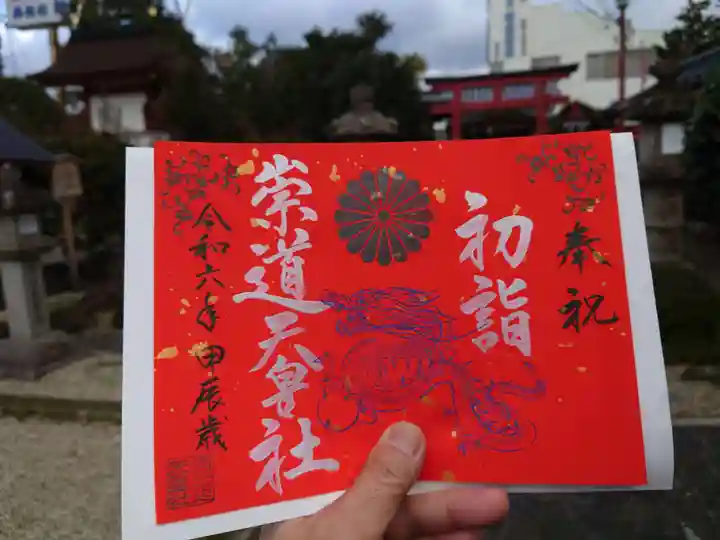 奉祝
初詣
崇道天皇社
令和六年甲辰歳